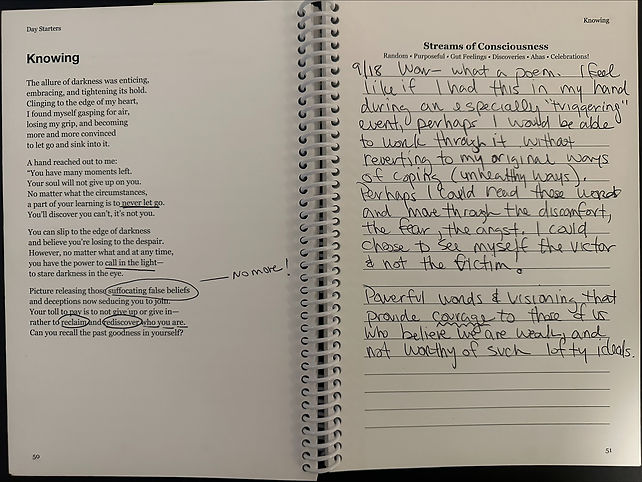 Day Starters
Knowing
The allure of darkness was enticing,
embracing, and tightening its hold.
Clinging to the edge of my heart,
I found myself gasping for air,
losing my grip, and becoming
more and more convinced
to let go and sink into it.
A hand reached out to me:
“You have many moments left.
Your soul will not give up on you.
No matter what the circumstances,
a part of your learning is to never let go.
You’ll discover you can’t, it’s not you.
You can slip to the edge of darkness
and believe you’re losing to the despair.
However, no matter what and at any time,
you have the power to call in the light—
to stare darkness in the eye.
Picture releasing those suffocating false beliefs
and deceptions now seducing you to join.
Your toll to pay is to not give up or give in—
rather to reclaim and rediscover who you are.
Can you recall the past goodness in yourself?”
no more!
50
Knowing
Streams of Consciousness
Random • Purposeful • Gut Feelings • Discoveries • Ahas • Celebrations!
9/18 Wow— what a poem. I feel
like if I had this in my hand
during an especially "triggering"
event, perhaps I would be able
to work through it without
reverting to my original ways
of coping (unhealthy ways).
Perhaps I could read these words
and move through the discomfort,
the fear, the angst. I could
choose to see myself the victor
& not the victim.
Powerful words & visioning that
provide courage to those of us
who believe we are weak, and
not worthy of such lofty ideals.
51